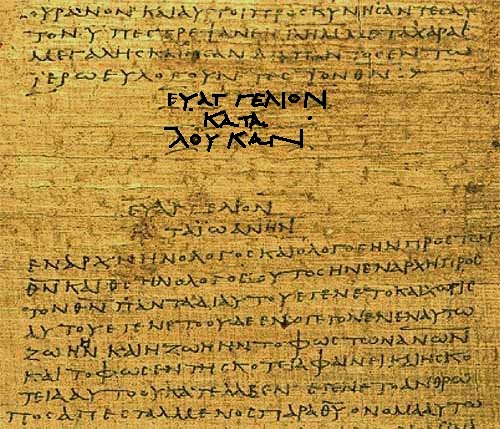 ΟΥΡΑΝΟΝ ΚΑΙ ΑΥΤΟΙ ΠΡΟϹΚΥΝΗϹΑΝΤΕϹ ΑΥ
ΤΟΝ ΥΠΕϹΤΡΕΨΑΝ ΜΕΤΑ ΧΑΡΑϹ
ΜΕΓΑΛΗϹ ΚΑΙ ΗϹΑΝ ΕΝ ΤΩ
ΙΕΡΩ ΕΥΛΟΓΟΥΝΤΕϹ ΤΟΝ ΘΝ
ΕΥΑΓΓΕΛΙΟΝ
ΚΑΤΑ
ΛΟΥΚΑΝ
ΕΥΑΓΓΕΛΙΟΝ
ΚΑΤΑ ΪΩΑΝΗΝ
ΕΝ ΑΡΧΗ ΗΝ Ο ΛΟΓΟϹ ΚΑΙ Ο ΛΟΓΟϹ ΗΝ ΠΡΟϹ ΤΟΝ
ΘΝ ΚΑΙ ΘϹ ΗΝ Ο ΛΟΓΟϹ ΟΥΤΟϹ ΗΝ ΕΝ ΑΡΧΗ ΠΡΟϹ
ΤΟΝ ΘΝ ΠΑΝΤΑ ΔΙ ΑΥΤΟΥ ΕΓΕΝΕΤΟ ΚΑΙ ΧΩΡΙϹ
ΑΥΤΟΥ ΕΓΕΝΕΤΟ ΟΥΔΕ ΕΝ Ο ΓΕΓΟΝΕΝ ΕΝ ΑΥΤΩ
ΖΩΗ ΗΝ ΚΑΙ Η ΖΩΗ ΗΝ ΤΟ ΦΩϹ ΤΩΝ ΑΝΩΝ
ΚΑΙ ΤΟ ΦΩϹ ΕΝ ΤΗ ϹΚΟΤΕΙΑ ΦΑΙΝΕΙ ΚΑΙ Η ϹΚΟ
ΤΕΙΑ ΑΥΤΟ ΟΥ ΚΑΤΕΛΑΒΕΝ ΕΓΕΝΕΤΟ ΑΝΘΡΩ
ΠΟϹ ΑΠΕϹΤΑΛΜΕΝΟϹ ΠΑΡΑ ΘΥ ΟΝΟΜΑ ΑΥΤΩ